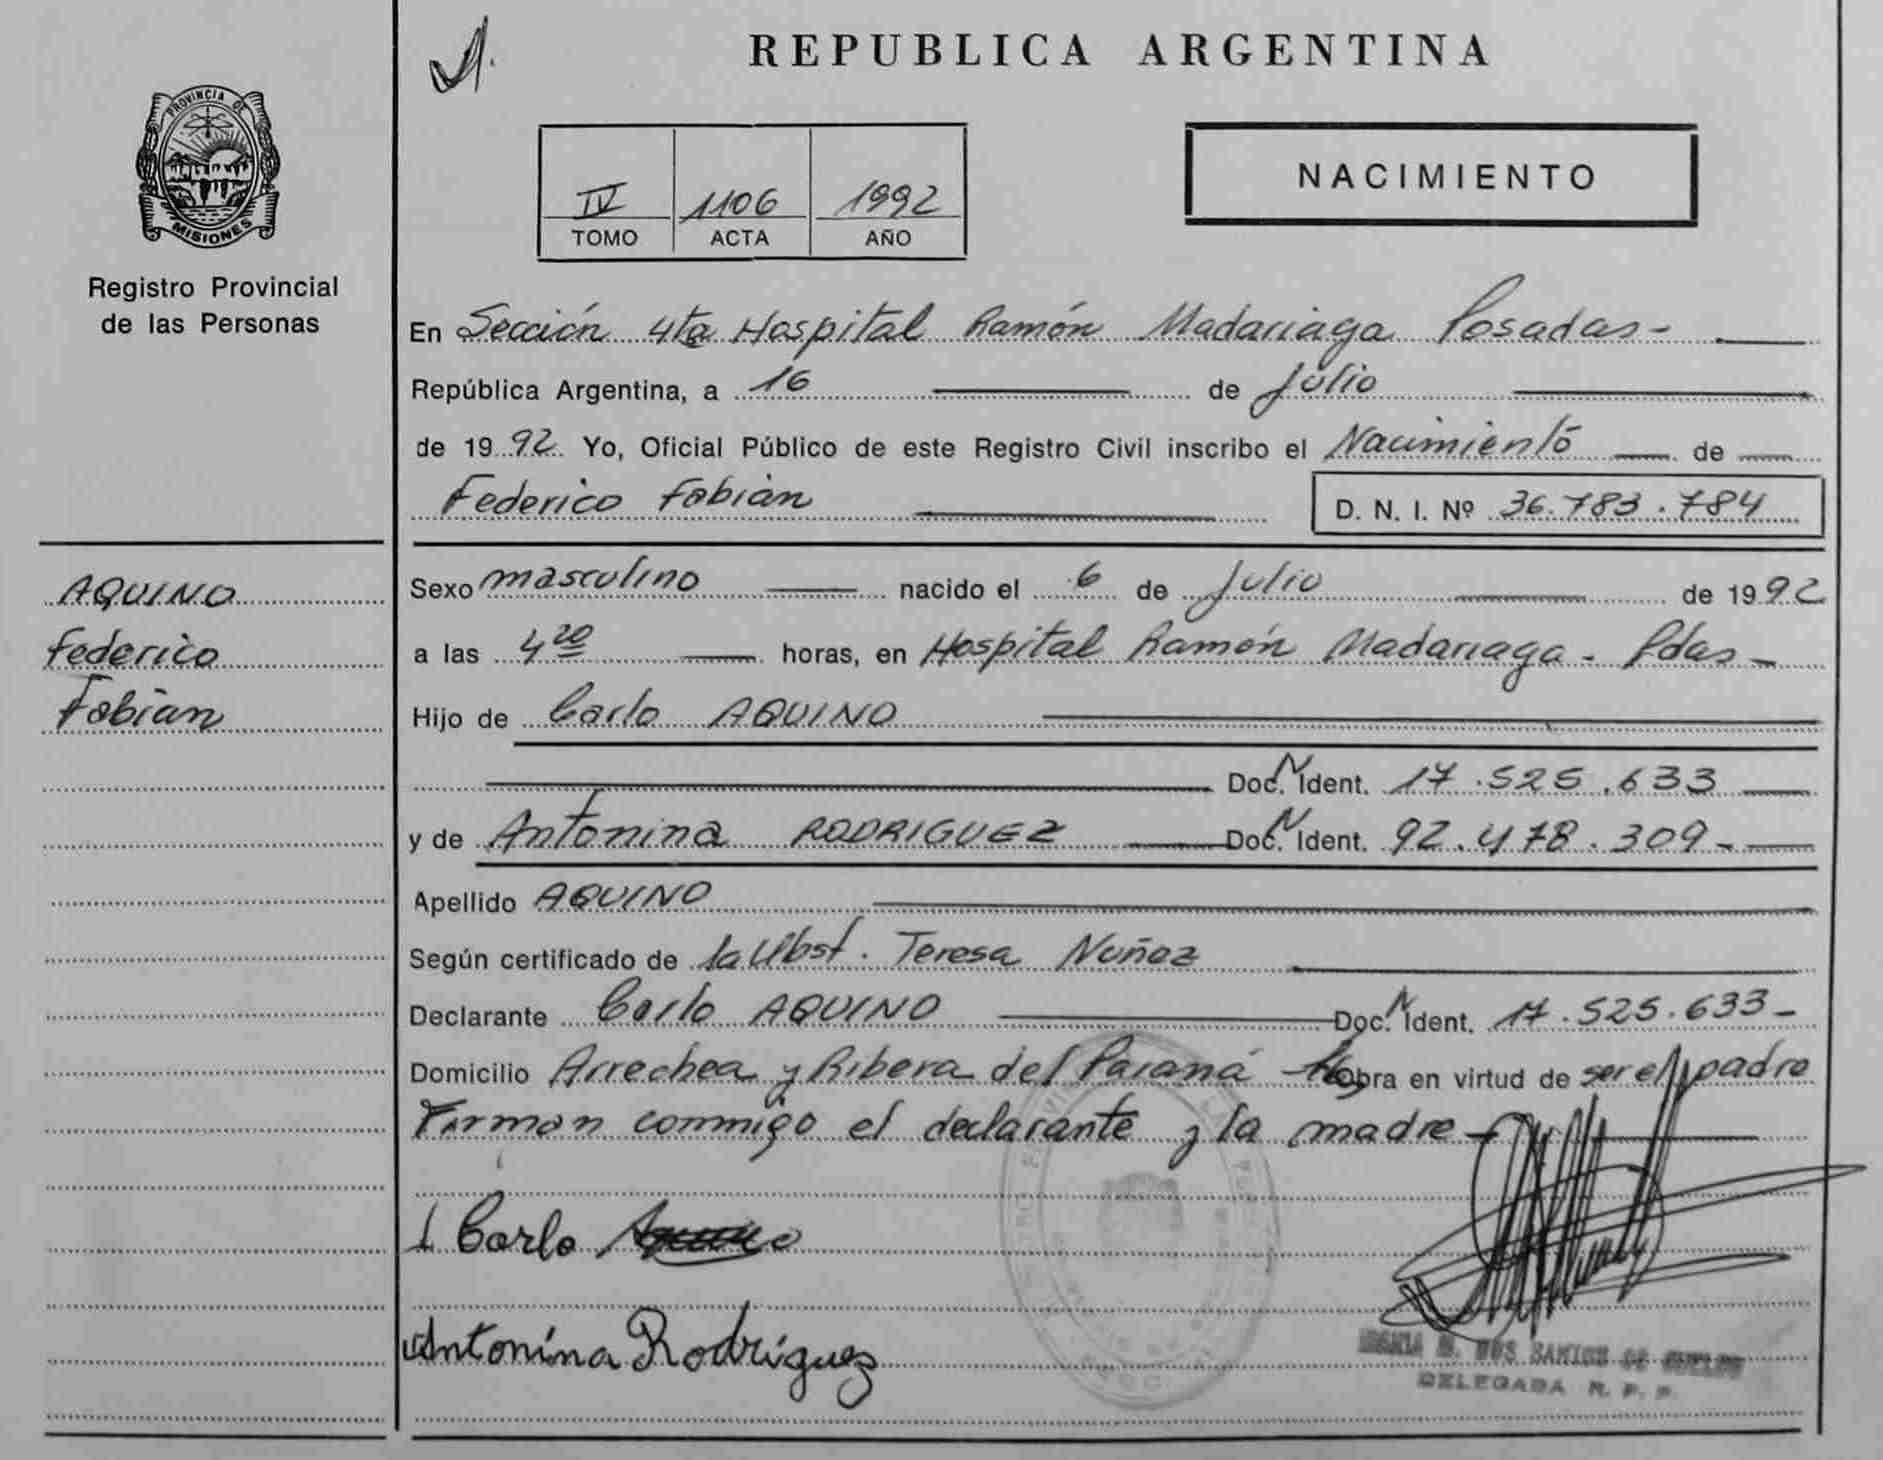 REPUBLICA ARGENTINA
PROVINCIA DE
MISIONES
Registro Provincial
de las Personas
IV 1106 1992
TOMO ACTA AÑO
NACIMIENTO
En Sección 4ta Hospital Ramón Madariaga Posadas-
República Argentina, a 16 de Julio
de 1992 Yo, Oficial Público de este Registro Civil inscribo el Nacimiento de
Federico Fabián D. N. I. Nº 36.783.784
AQUINO
Federico
Fabián
Sexo masculino nacido el 6 de Julio de 1992
a las 4 20 horas, en Hospital Ramón Madariaga - Pdas-
Hijo de Carlo AQUINO
Doc. N Ident. 17.525.633
y de Antonina RODRIGUEZ Doc. N Ident. 92.478.309-
Apellido AQUINO
Según certificado de la Obst. Teresa Nuñez
Declarante Carlo AQUINO Doc. N Ident. 17.525.633-
Domicilio Arrechea y Ribera del Paraná Obra en virtud de ser el padre
Firman conmigo el declarante y la madre-
Carlo Aquino
Antonina Rodríguez
DELEGADA R. P. P.